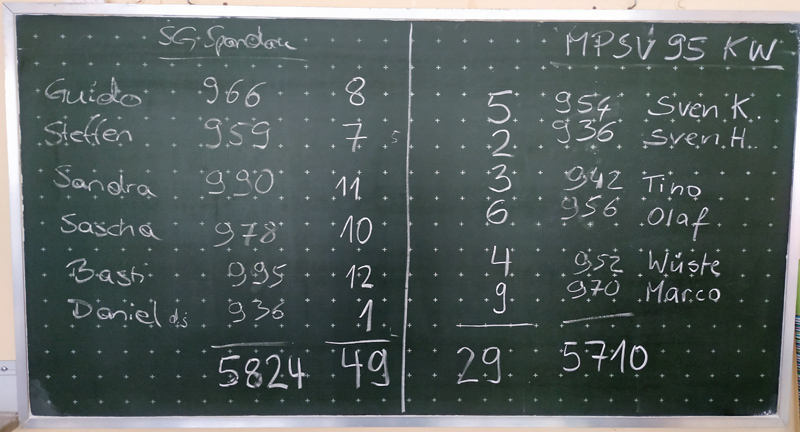 SG Spandau
Guido 966 8
Steffen 959 7
Sandra 990 11
Sascha 978 10
Basti 995 12
Daniel 936 1
5824 49
MPSV 95 KW
5 954 Sven K.
2 936 Sven H.
3 942 Tino
6 956 Olaf
4 952 Wüste
9 970 Marco
29 5710